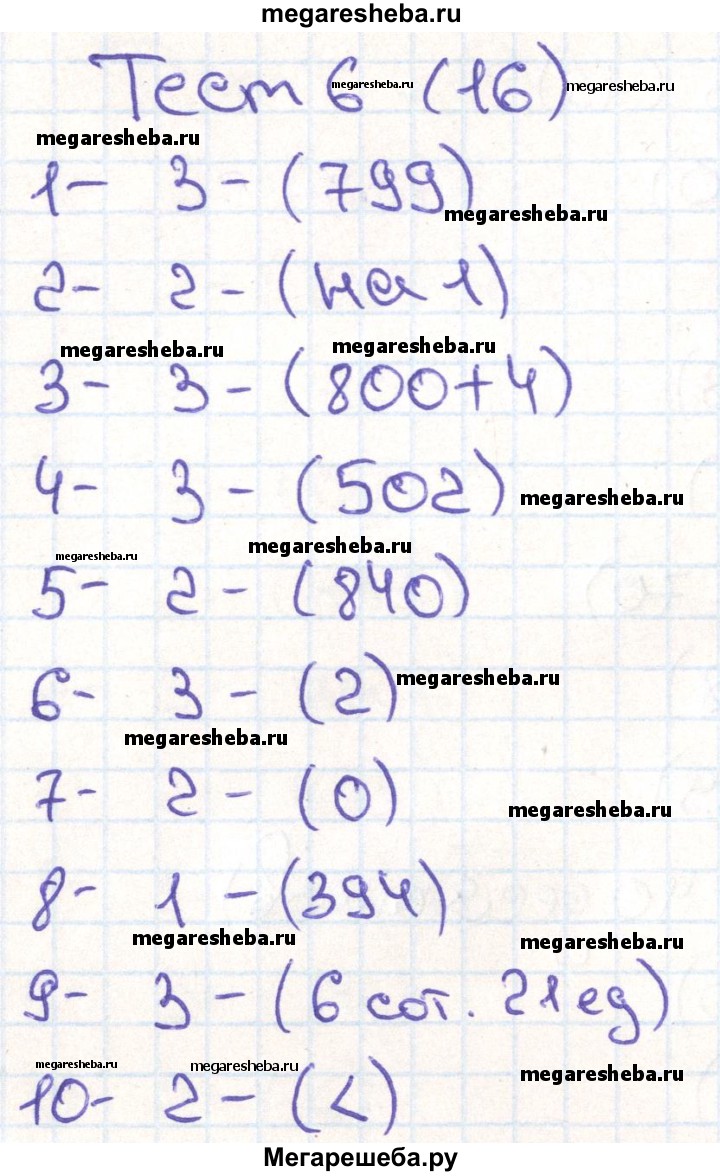 megaresheba.ru
Тест 6 (16)
megaresheba.ru megaresheba.ru
megaresheba.ru
1- 3 - (799)
megaresheba.ru
2- 2 - (на 1)
megaresheba.ru megaresheba.ru
3- 3 - (800+4)
4- 3 - (502)
megaresheba.ru
megaresheba.ru megaresheba.ru
5- 2 - (840)
6- 3 - (2)
megaresheba.ru
megaresheba.ru
7- 2 - (0)
megaresheba.ru
8- 1 - (394)
megaresheba.ru megaresheba.ru
9- 3 - (6 сот. 21 ед)
megaresheba.ru megaresheba.ru megaresheba.ru
10- 2 - (<)
Мегарешеба.ру